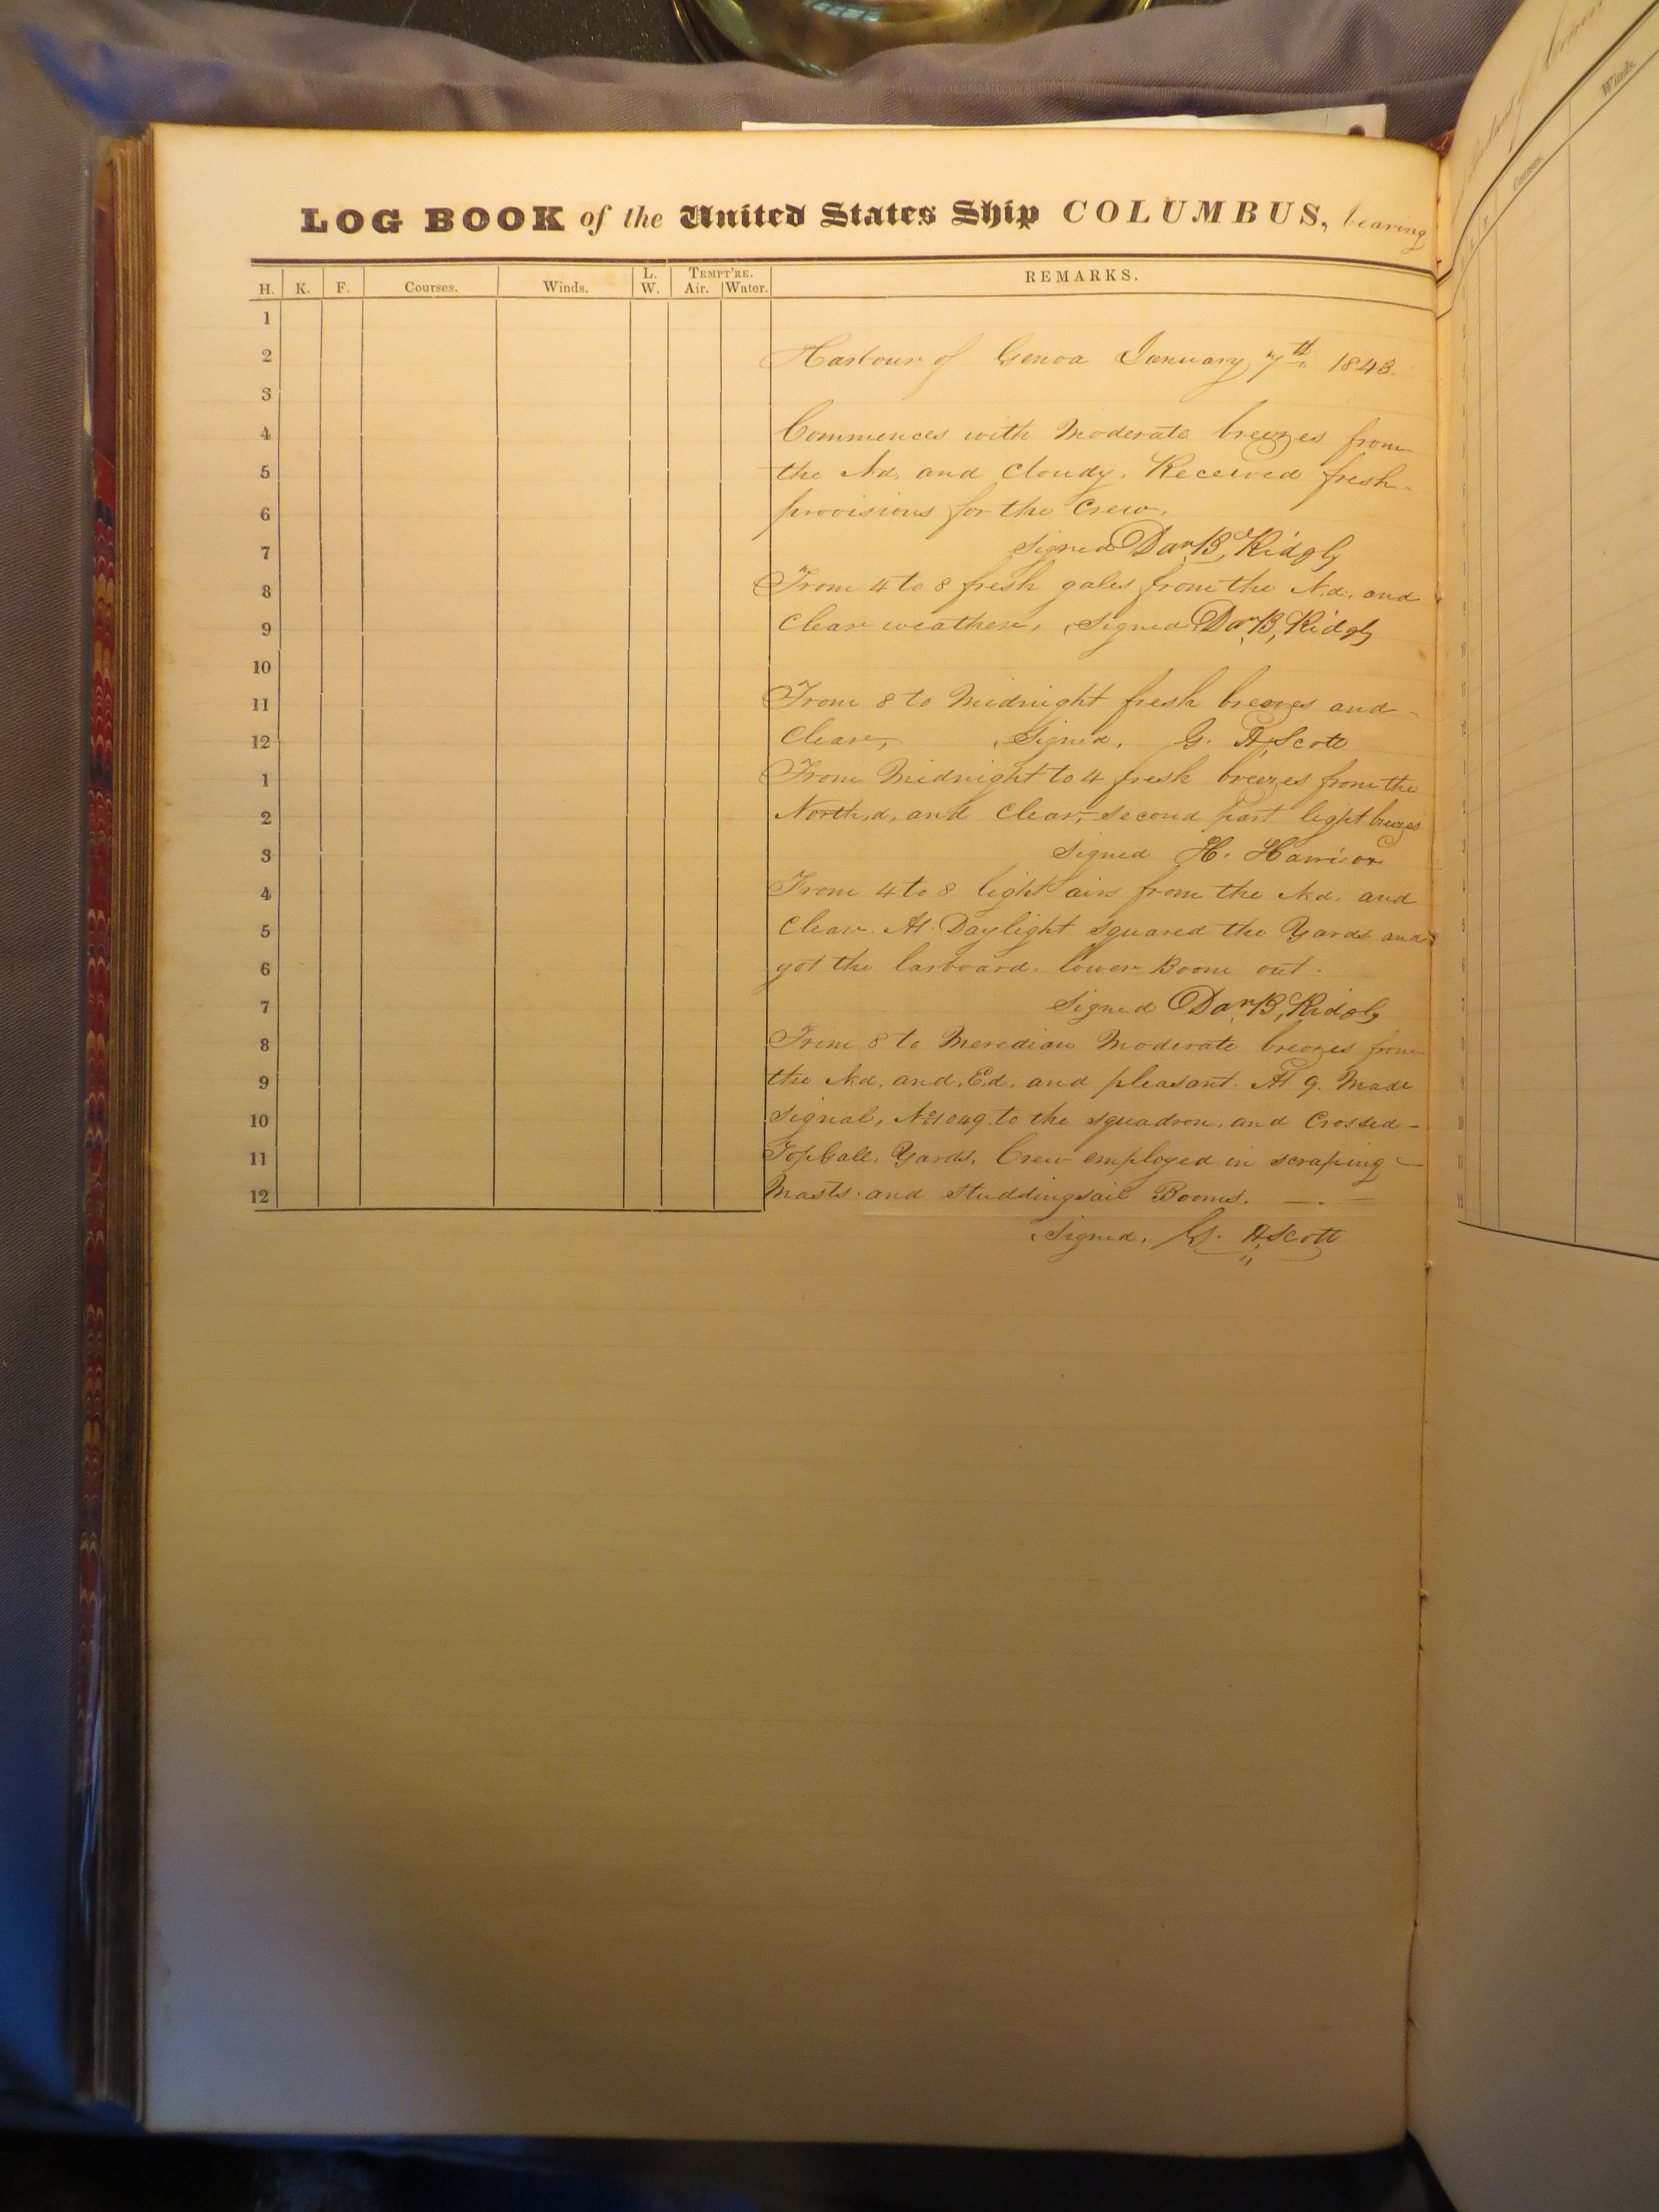 LOG BOOK of the United States Ship COLUMBUS, bearing
H. K. F. Courses. Winds. L. W. TEMPT'RE. Air. Water. REMARKS.
1
2 Harbour of Genoa January 7th 1843.
3
4 Commences with Moderate breezes from
5 the Nd. and Cloudy. Received fresh
6 provisions for the Crew.
7 Signed Danl B, Ridgly
8 From 4 to 8 fresh gales from the N.d. and
9 Clear weather, Signed Danl B, Ridgly
10
11 From 8 to Midnight fresh breezes and
12 Clear, Signed, G. H, Scott
1 From Midnight to 4 fresh breezes from the
2 North,d, and Clear, second part light breezes
3 Signed H. Harrison
4 From 4 to 8 light airs from the Nd. and
5 Clear. At Daylight squared the Yards and
6 got the larboard lower Boom out.
7 Signed Danl B, Ridgly
8 From 8 to Meredian Moderate breezes from
9 the Nd. and, Ed. and pleasant. At 9. Made
10 Signal, No 1049 to the squadron, and Crossed
11 TopGall. Yards. Crew employed in scraping
12 Masts and Studdingsail Booms.
Signed, G. H Scott
Courses. Winds.